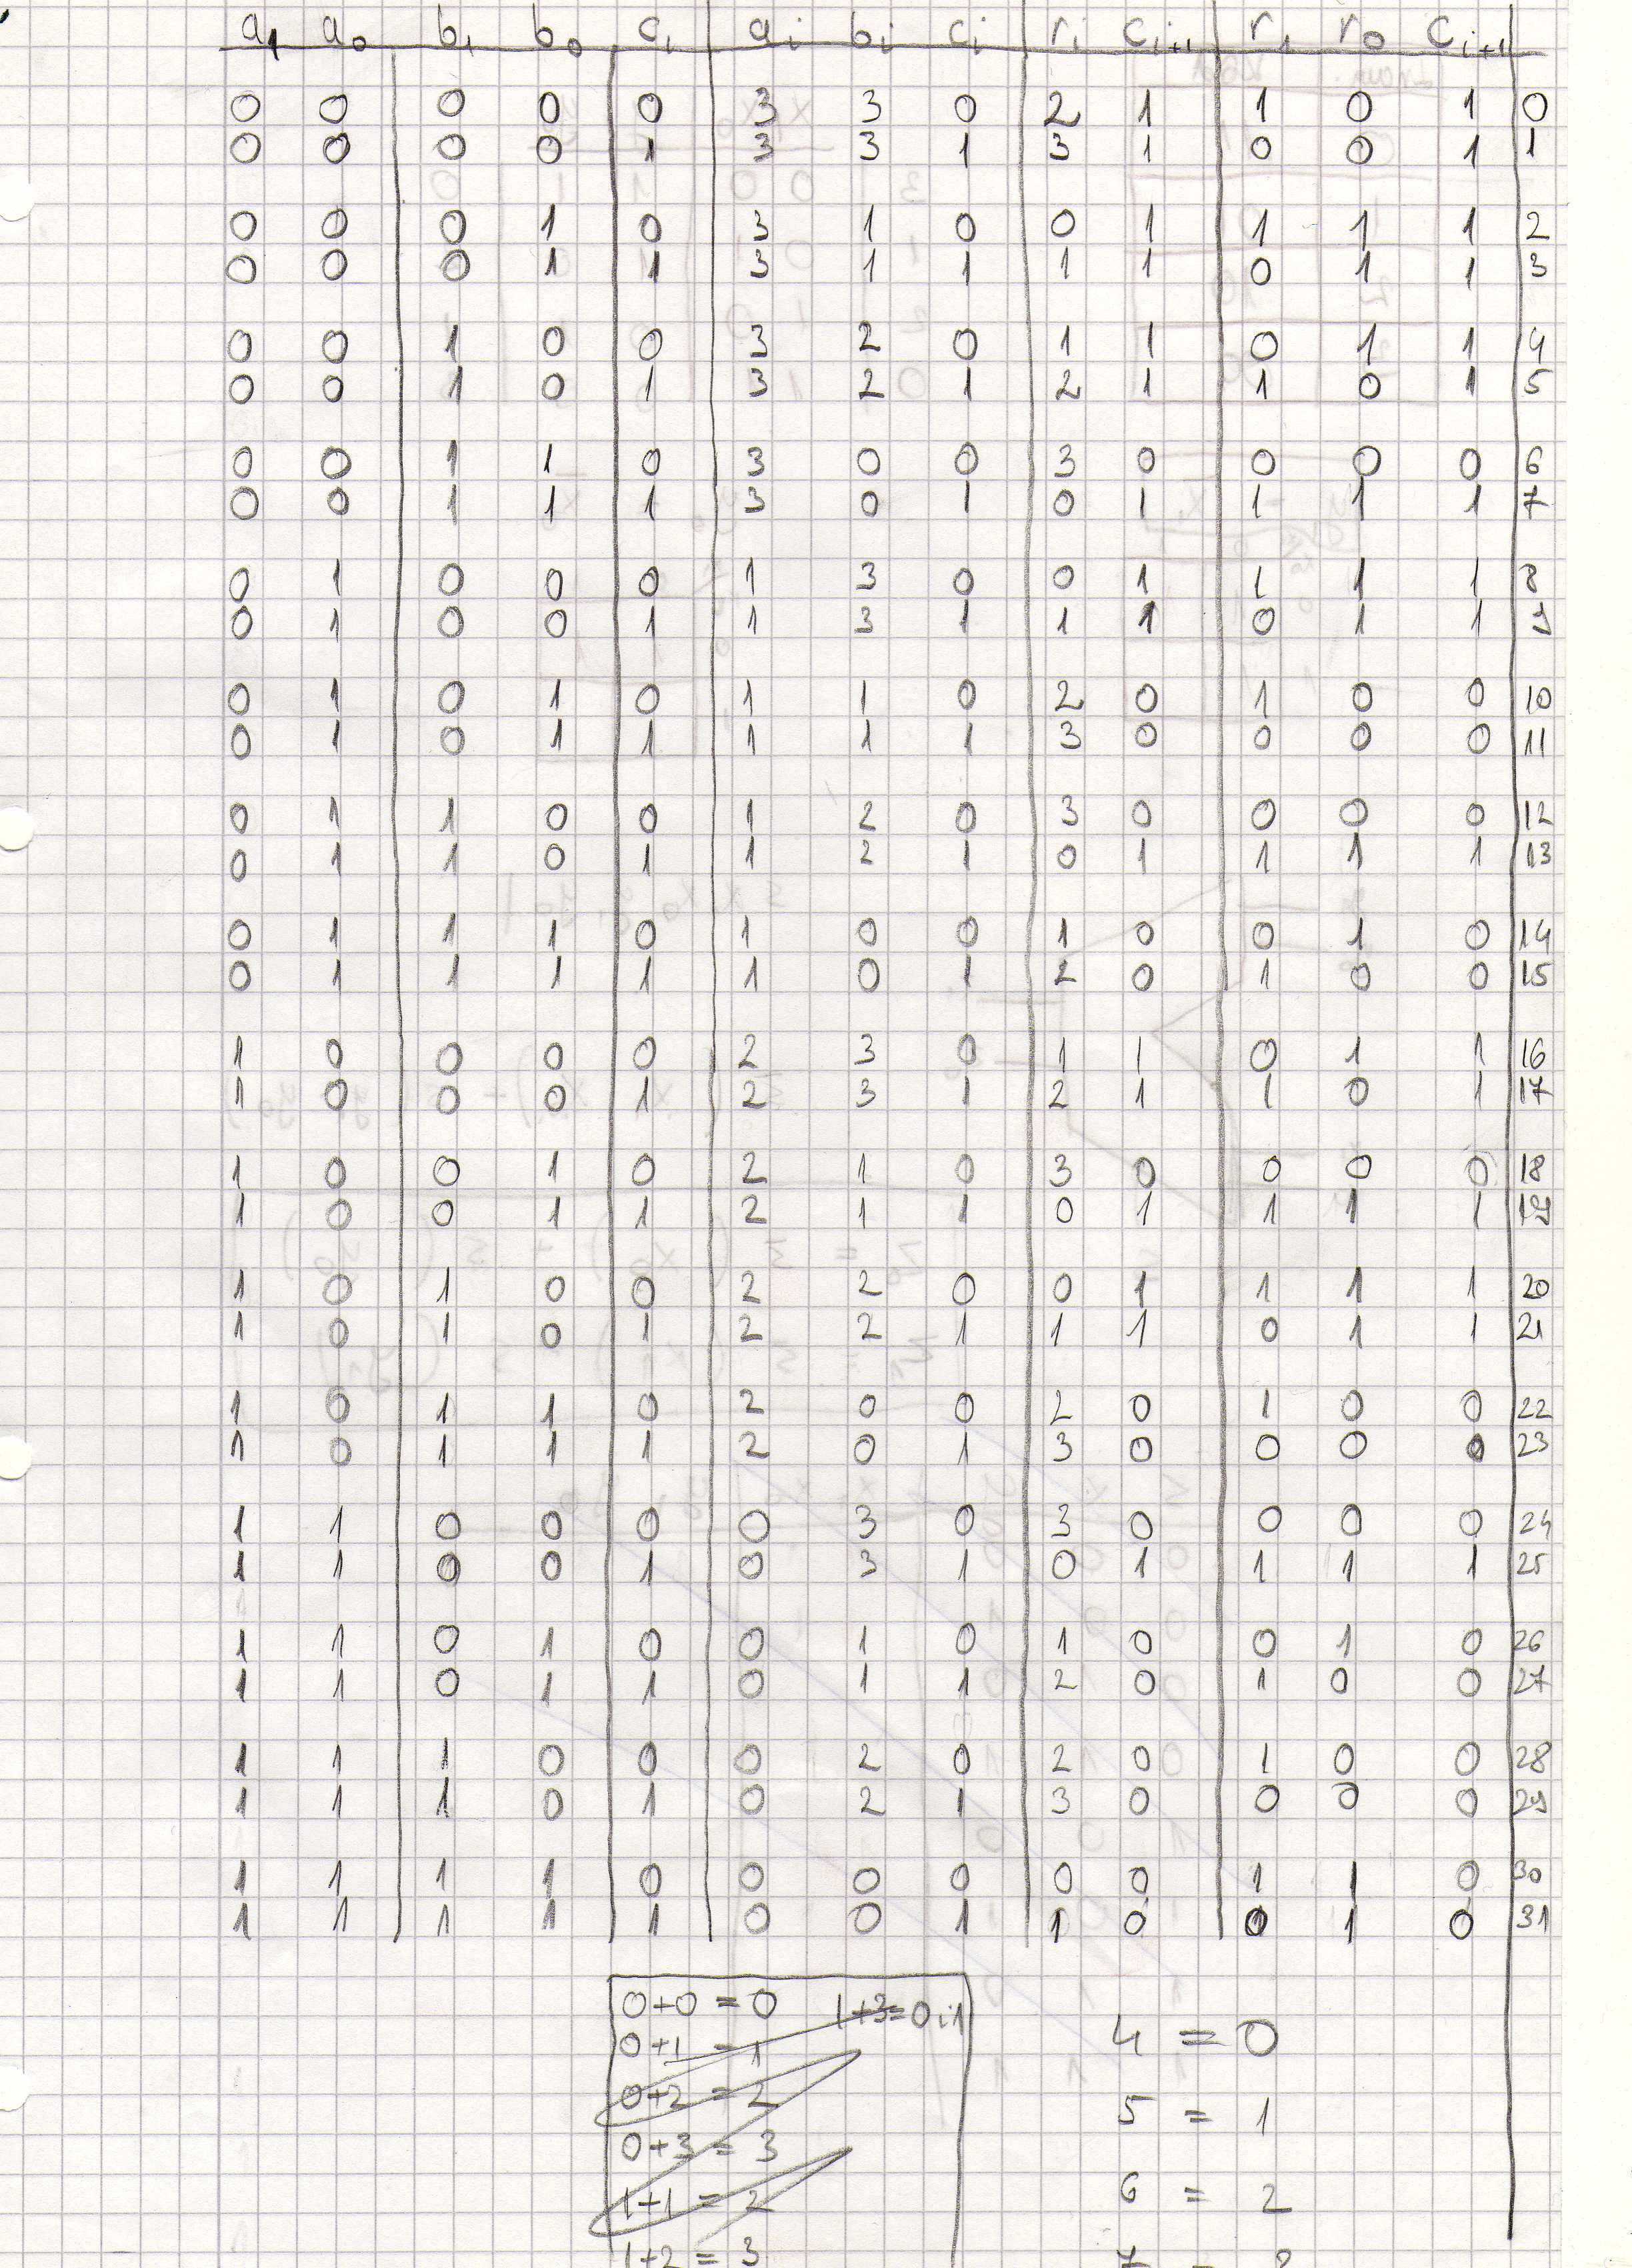 a₁ a₀ b₁ b₀ cᵢ aᵢ bᵢ cᵢ rᵢ cᵢ₊₁ r₁ r₀ cᵢ₊₁
0 0 0 0 0 3 3 0 2 1 1 0 1 0
0 0 0 0 1 3 3 1 3 1 0 0 1 1
0 0 0 1 0 3 1 0 0 1 1 1 1 2
0 0 0 1 1 3 1 1 1 1 0 1 1 3
0 0 1 0 0 3 2 0 1 1 0 1 1 4
0 0 1 0 1 3 2 1 2 1 1 0 1 5
0 0 1 1 0 3 0 0 3 0 0 0 0 6
0 0 1 1 1 3 0 1 0 1 1 1 1 7
0 1 0 0 0 1 3 0 0 1 1 1 1 8
0 1 0 0 1 1 3 1 1 1 0 1 1 9
0 1 0 1 0 1 1 0 2 0 1 0 0 10
0 1 0 1 1 1 1 1 3 0 0 0 0 11
0 1 1 0 0 1 2 0 3 0 0 0 0 12
0 1 1 0 1 1 2 1 0 1 1 1 1 13
0 1 1 1 0 1 0 0 1 0 0 1 0 14
0 1 1 1 1 1 0 1 2 0 1 0 0 15
1 0 0 0 0 2 3 0 1 1 0 1 1 16
1 0 0 0 1 2 3 1 2 1 1 0 1 17
1 0 0 1 0 2 1 0 3 0 0 0 0 18
1 0 0 1 1 2 1 1 0 1 1 1 1 19
1 0 1 0 0 2 2 0 0 1 1 1 1 20
1 0 1 0 1 2 2 1 1 1 0 1 1 21
1 0 1 1 0 2 0 0 2 0 1 0 0 22
1 0 1 1 1 2 0 1 3 0 0 0 0 23
1 1 0 0 0 0 3 0 3 0 0 0 0 24
1 1 0 0 1 0 3 1 0 1 1 1 1 25
1 1 0 1 0 0 1 0 1 0 0 1 0 26
1 1 0 1 1 0 1 1 2 0 1 0 0 27
1 1 1 0 0 0 2 0 2 0 1 0 0 28
1 1 1 0 1 0 2 1 3 0 0 0 0 29
1 1 1 1 0 0 0 0 0 0 1 1 0 30
1 1 1 1 1 0 0 1 1 0 0 1 0 31
0+0 = 0 1+3=0 i 1
0+1 = 1
0+2 = 2
0+3 = 3
1+1 = 2
1+2 = 3
4 = 0
5 = 1
6 = 2